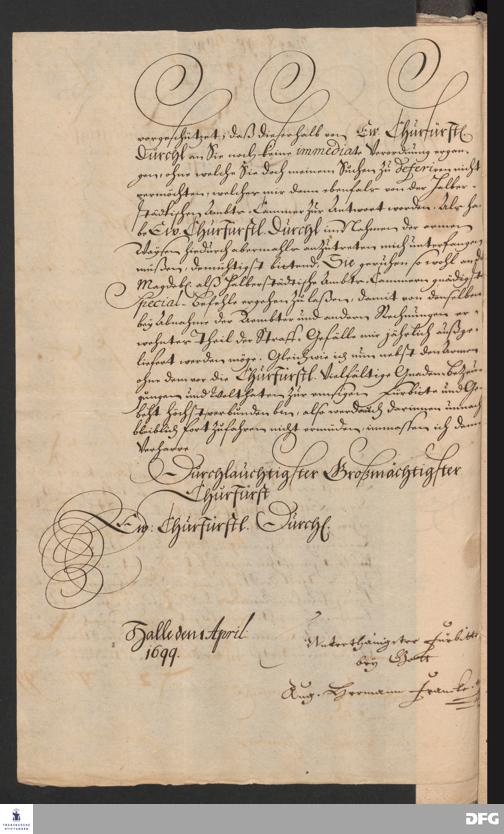 vorgeschützet, daß dieserhalb von Ew. Churfürstl.
Durchl an Sie noch keine immediate Verordnung ergan-
gen, ohne welche Sie doch meinem Suchen zu deferiren nicht
vermöchten, welches mir denn ebenfals von der Halber-
städtischen Ambts-Cammer zur Antwort worden. Als ha-
be Ew. Churfürstl. Durchl im Nahmen der armen
Waysen hiedurch abermahls anzutreten mich unterfangen
müßen, demütigst bittend, Sie geruhen so wohl an die
Magdeb. alß Halberstädtische Ambts-Cammern gnädigst
special-Befehle ergehen zu laßen, damit von denselben
bey Abnahme der Aembter und andern Rechnungen er-
wehnter Theil der Straff-Gefälle mir jährlich außge-
liefert werden möge. Gleichwie ich nun nebst den Armen
ohne dem vor die Churfürstl. Vielfältige Gnadenbezeu-
gungen und Wolthaten zur eyfrigen Fürbitte und Ge-
beth höchst verbunden bin, also werde auch darinnen
fort zufahren nicht ermüden, immassen ich denn
Verharre
Durchlauchtigster Großmächtigster
Churfürst
Ew: Churfürstl. Durchl.
Halle den 1 April
1699.
Unterthänigster Fürbitter
bey Gott
Aug. Hermann Francke.
FRANCKESCHE
STIFTUNGEN
DFG